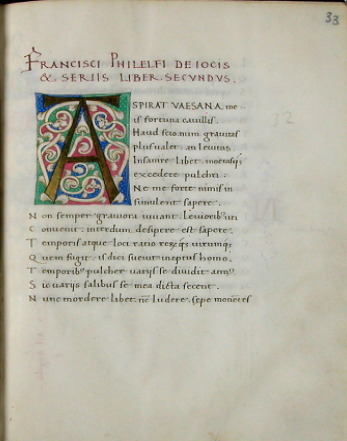 33
FRANCISCI PHILELFI DE IOCIS
& SERIIS LIBER SECVNDVS.
ASPIRAT VAESANA me
is fortuna cauillis.
Haud scio num grauitas
plus ualet an leuitas
Insanire libet
excedere pulchri:
Ne me forte nimis in
simulent sapere.
Non semper grauiora iuuant. Leuiorib' uti
Conuenit: interdum desipere est sapere.
Temporis atque loci ratio utrumq;
Quem fugit is dici sueuit ineptus homo.
Temporib' pulcher uarijs se diuidit
Sic uarijs salibus se mea dicta secent.
Nunc mordere libet ludere. sepe
32